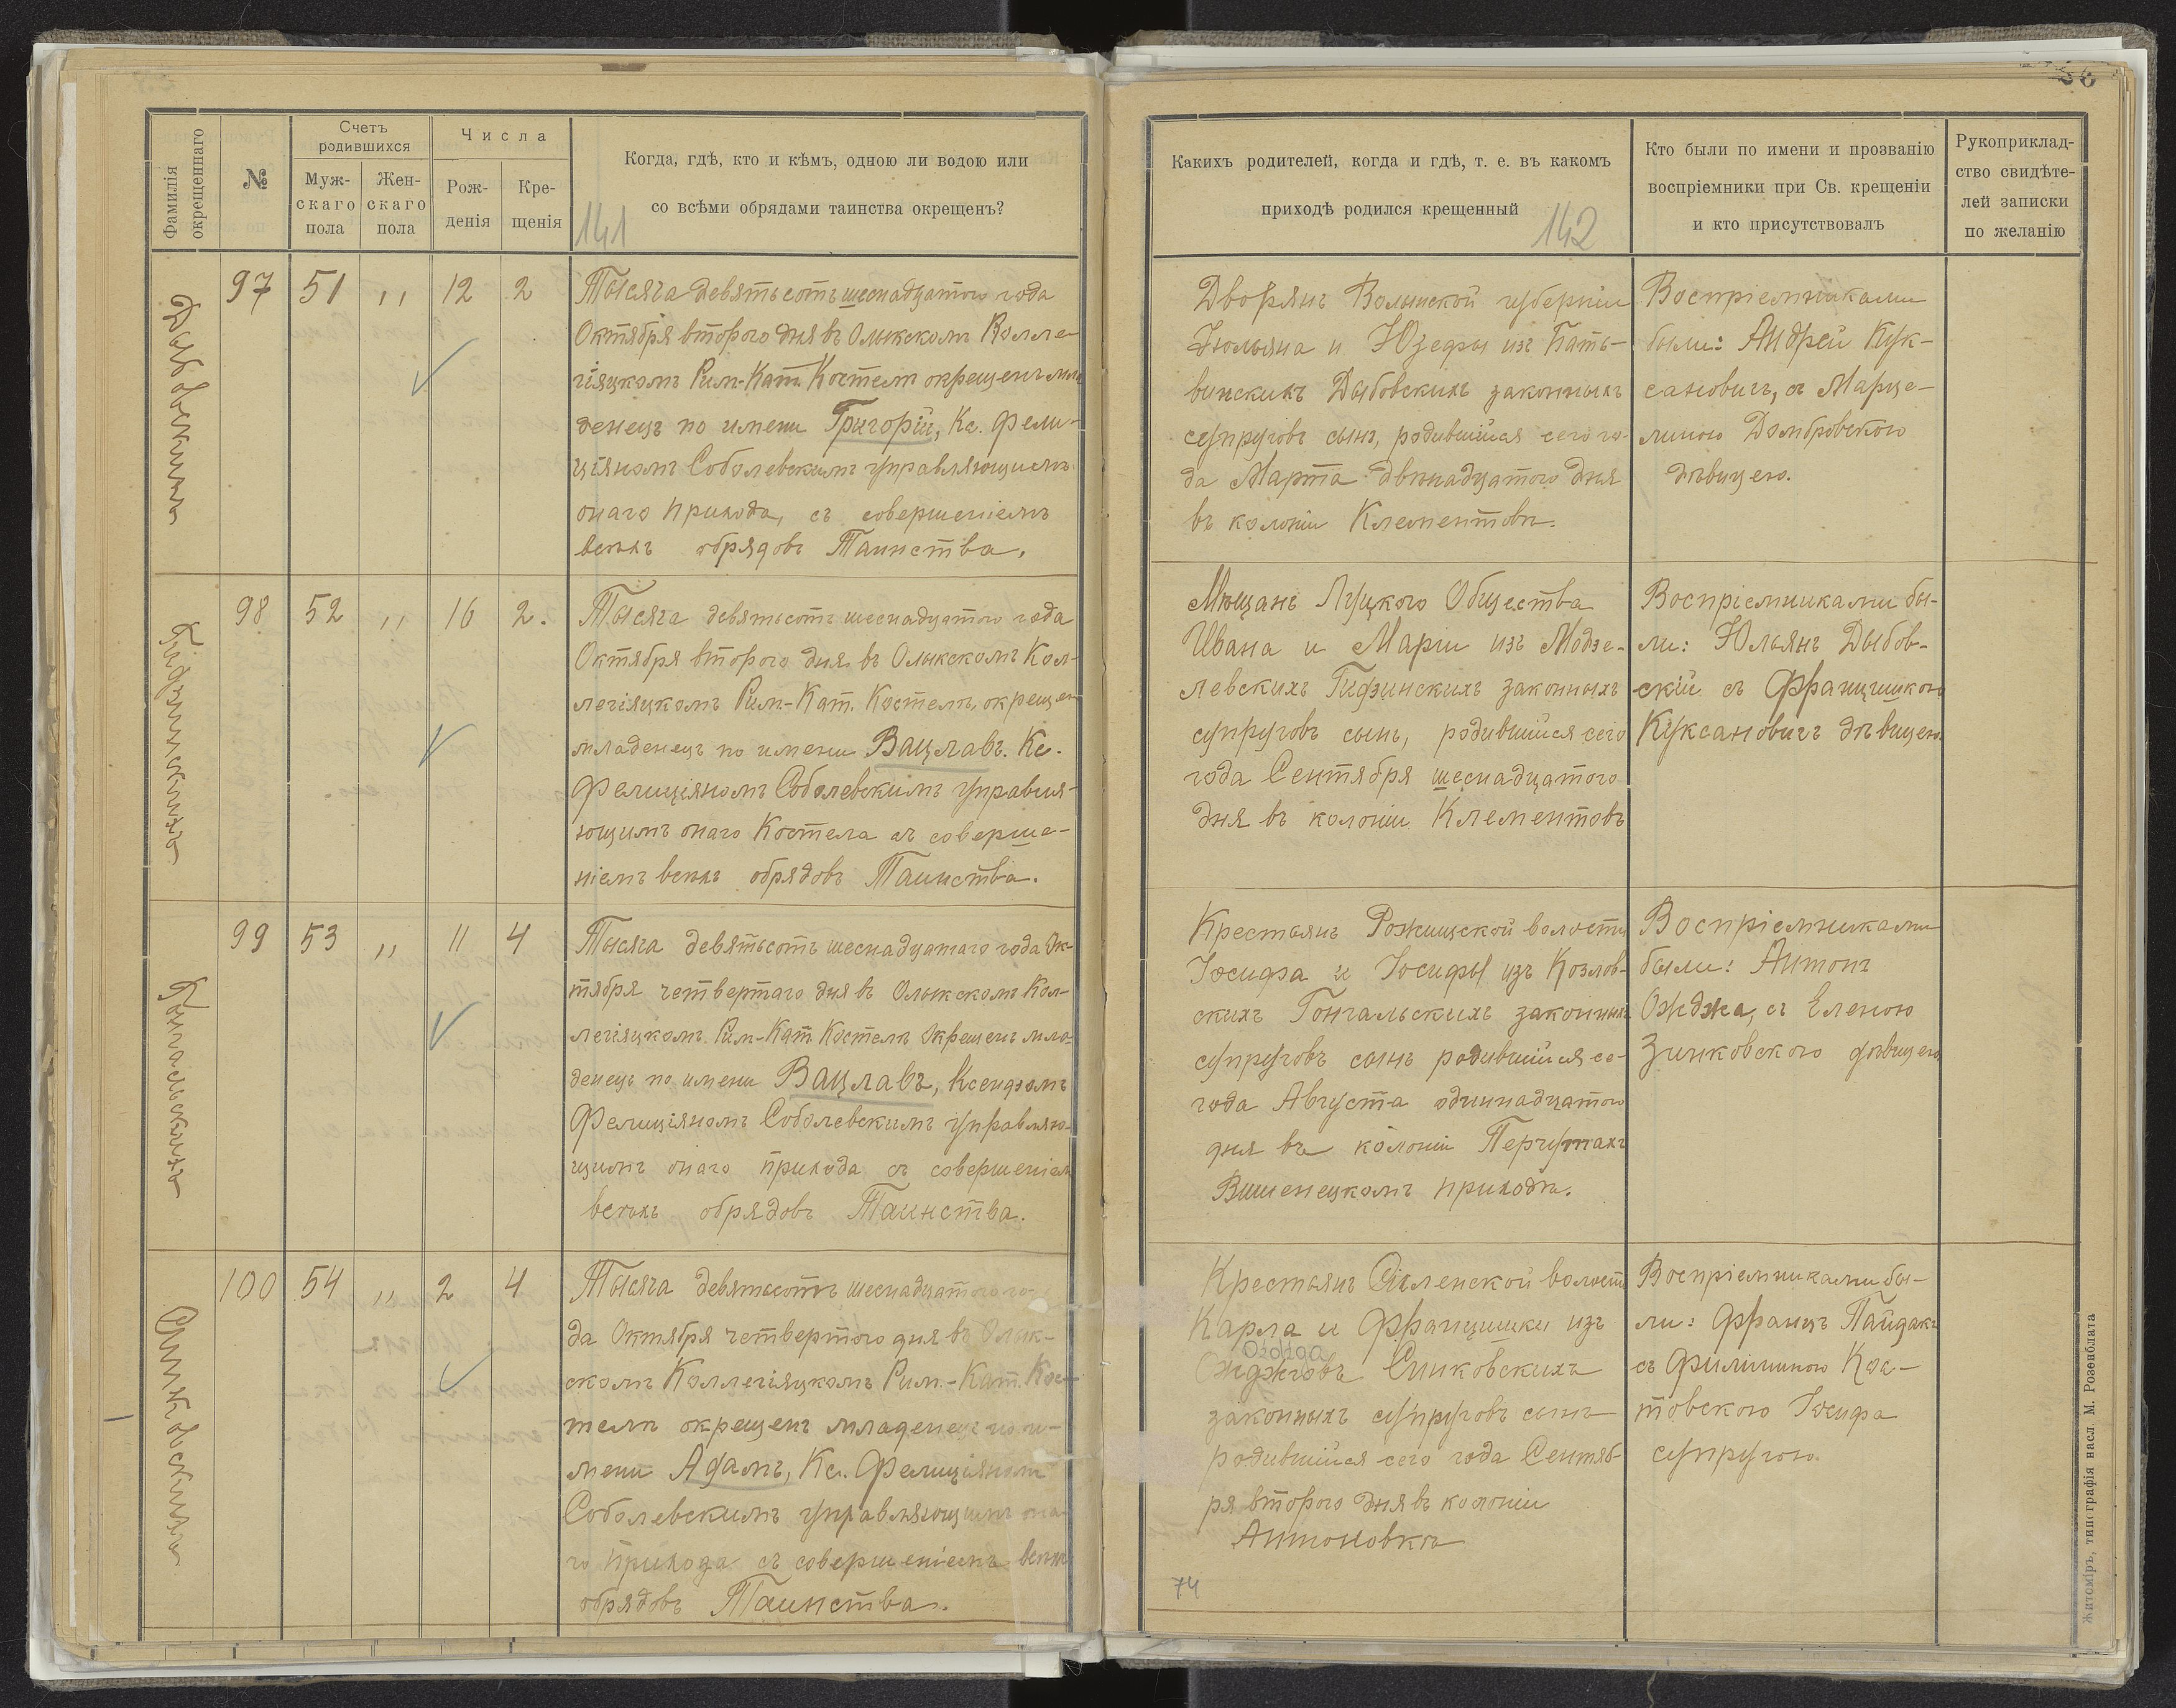 Фамилія
окрещеннаго
№
Счетъ
родившихся
Муж-
скаго
пола
Жен-
скаго
пола
Числа
Рож-
денія
Кре-
щенія
Когда, гдѣ, кто и кѣмъ, одною ли водою или
со всѣми обрядами таинства окрещенъ?
141
Дыбовскихъ
97 51 " 12 2
Тысяча девятьсотъ шеснадцатого года
Октября второго дня въ Олыкскомъ Колле-
гіяцкомъ Рим-Кат. Костелѣ окрещенъ мла
денецъ по имени Григорій, Кс. Фели-
ціяномъ Соболевскимъ управляющимъ
онаго прихода, съ совершеніемъ
всѣхъ обрядовъ Таинства.
Гидзинскихъ
98 52 " 16 2.
Тысяча девятьсотъ шеснадцатого года
Октября второго дня въ Олыкскомъ Кол-
легіяцкомъ Рим-Кат. Костелѣ, окрещен
младенецъ по имени Вацлавъ. Кс.
Фелиціяномъ Соболевскимъ управля-
ющимъ онаго Костела съ соверше-
ніемъ всѣхъ обрядовъ Таинства.
Гончальскихъ
99 53 " 11 4
Тысяча девятьсотъ шеснадцатаго года Ок-
тября четвертаго дня въ Олыкскомъ Кол-
легіяцкомъ Рим-Кат Костелѣ окрещенъ мла-
денецъ по имени Вацлавъ, Ксендзомъ
Фелиціяномъ Соболевскимъ управляю-
щимъ онаго прихода съ совершеніем
всѣхъ обрядовъ Таинства.
Синковскихъ
100 54 " 2 4
Тысяча девятьсотъ шеснадцатого го-
да Октября четвертого дня въ Олык-
скомъ Коллегіяцкомъ Рим.-Кат. Кос-
телѣ окрещенъ младенецъ по и-
мени Адамъ, Кс. Фелиціяномъ
Соболевскимъ управляющимъ она-
го прихода съ совершеніемъ всѣхъ
обрядовъ Таинства.
Какихъ родителей, когда и гдѣ, т. е. въ какомъ
приходѣ родился крещенный
142
Кто были по имени и прозванію
воспріемники при Св. крещеніи
и кто присутствовалъ
Рукоприклад-
ство свидѣте-
лей записки
по желанію
Дворянъ Волынской губерніи
Юльяна и Юзефы изъ Бать-
винскихъ Дыбовскихъ законныхъ
супруговъ сынъ, родившійся сего го-
да Марта двѣнадцатого дня
въ колоніи Клементовѣ.
Воспріемниками
были: Андрей Кук-
сановичъ, съ Марце-
линою Домбровскою
дѣвицею.
Мѣщанъ Луцкого Общества
Ивана и Маріи изъ Модзе-
левскихъ Гидзинскихъ законныхъ
супруговъ сынъ, родившійся сего
года Сентября шеснадцатого
дня въ колоніи Клементовѣ
Воспріемниками бы-
ли: Юльянъ Дыбов-
скій съ Францишкою
Куксановичъ дѣвицею.
Крестьянъ Рожищской волости
Іосифа и Іосифы изъ Козлов-
скихъ Гончальскихъ законныхъ
супруговъ сынъ родившійся се-
года Августа одиннадцатого
дня въ колоніи Перчутахъ
Вишенецкомъ приходѣ.
Воспріемниками
были: Антонъ
Ожджа, съ Еленою
Зинковскою дѣвицею
Крестьянъ Силенской волости
Карла и Францишки изъ
Ozdga
Ожджовъ Синковскихъ
законныхъ супруговъ сынъ
родившійся сего года Сентяб-
ря второго дня въ колоніи
Антоновкѣ
Воспріемниками бы-
ли: Францъ Пайдакъ
съ Филиминою Кос-
товскою Іосифа
супругою.
74
Житоміръ, типографія насл. М. Розенблата